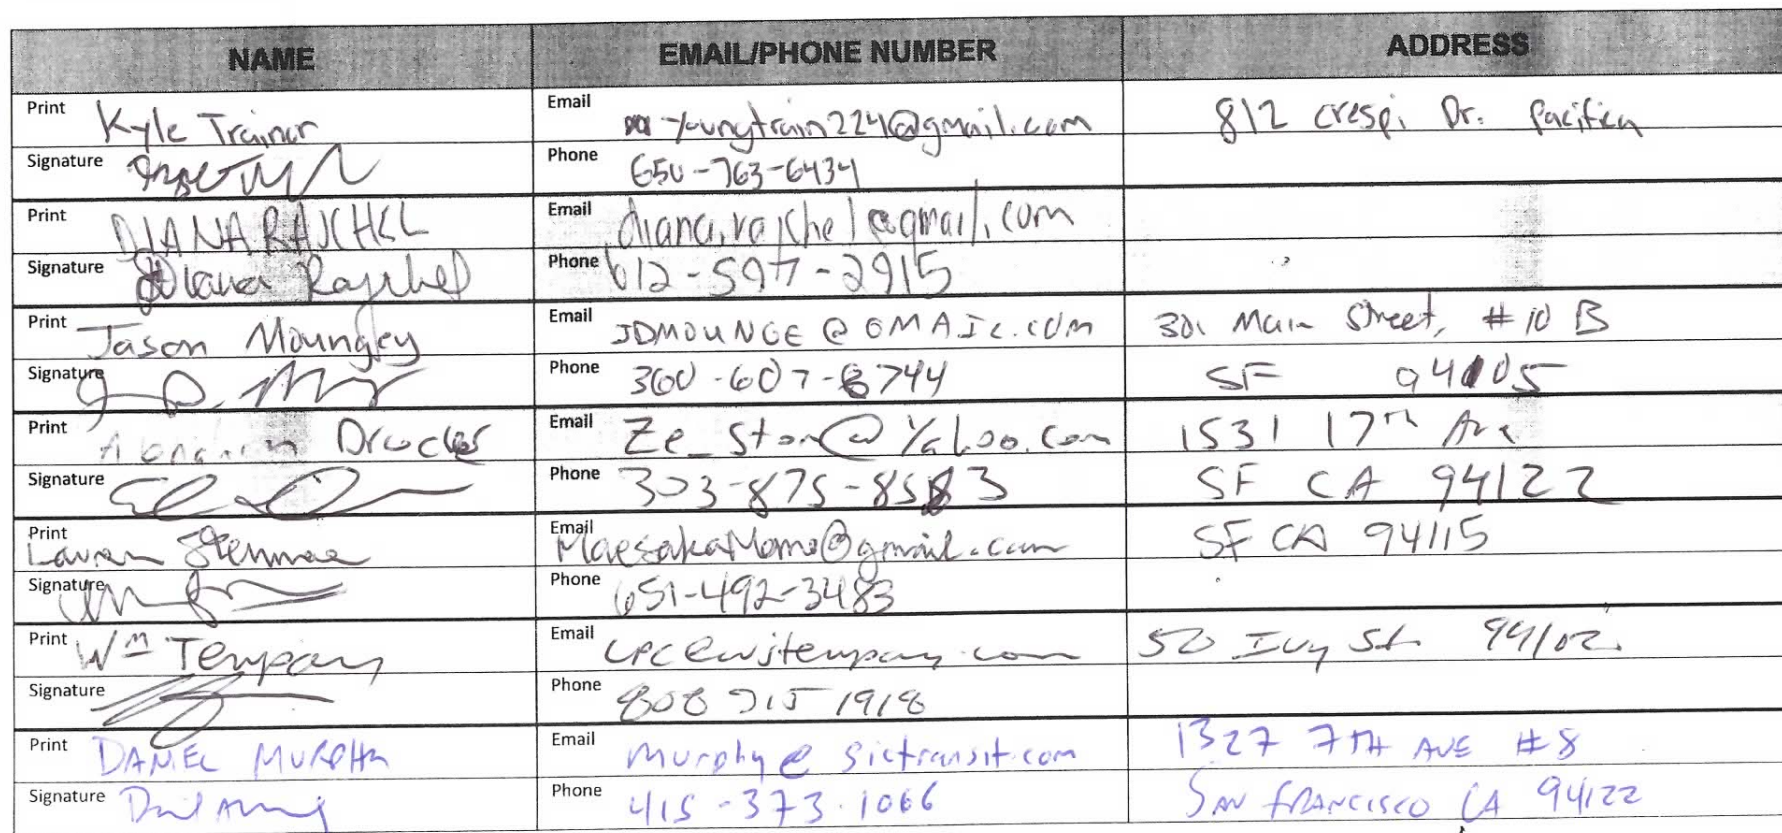 NAME EMAIL/PHONE NUMBER ADDRESS
Print Kyle Trainor Email youngtrain224@gmail.com 812 crespi Dr. Pacifica
Signature Phone 650-763-6434
Print DIANA RAJCHEL Email diana.rajchel@gmail.com
Signature Diana Rajchel Phone 612-597-2915
Print Jason Moungey Email JDMOUNGE@GMAIL.COM 301 Main Street, #10 B
Signature Phone 360-607-8744 SF 94105
Print Drucker Email Ze_ston@Yahoo.com 1531 17th Ave
Signature Phone 303-875-8583 SF CA 94122
Print Lauren Email MaesakaMomo@gmail.com SF CA 94115
Signature Phone 651-492-3483
Print Wm Tempany Email 50 Ivy St 94102
Signature Phone 808 1918
Print DANIEL MURPHY Email murphy@sictransit.com 1327 7TH AVE #8
Signature Phone 415-373-1066 SAN FRANCISCO CA 94122